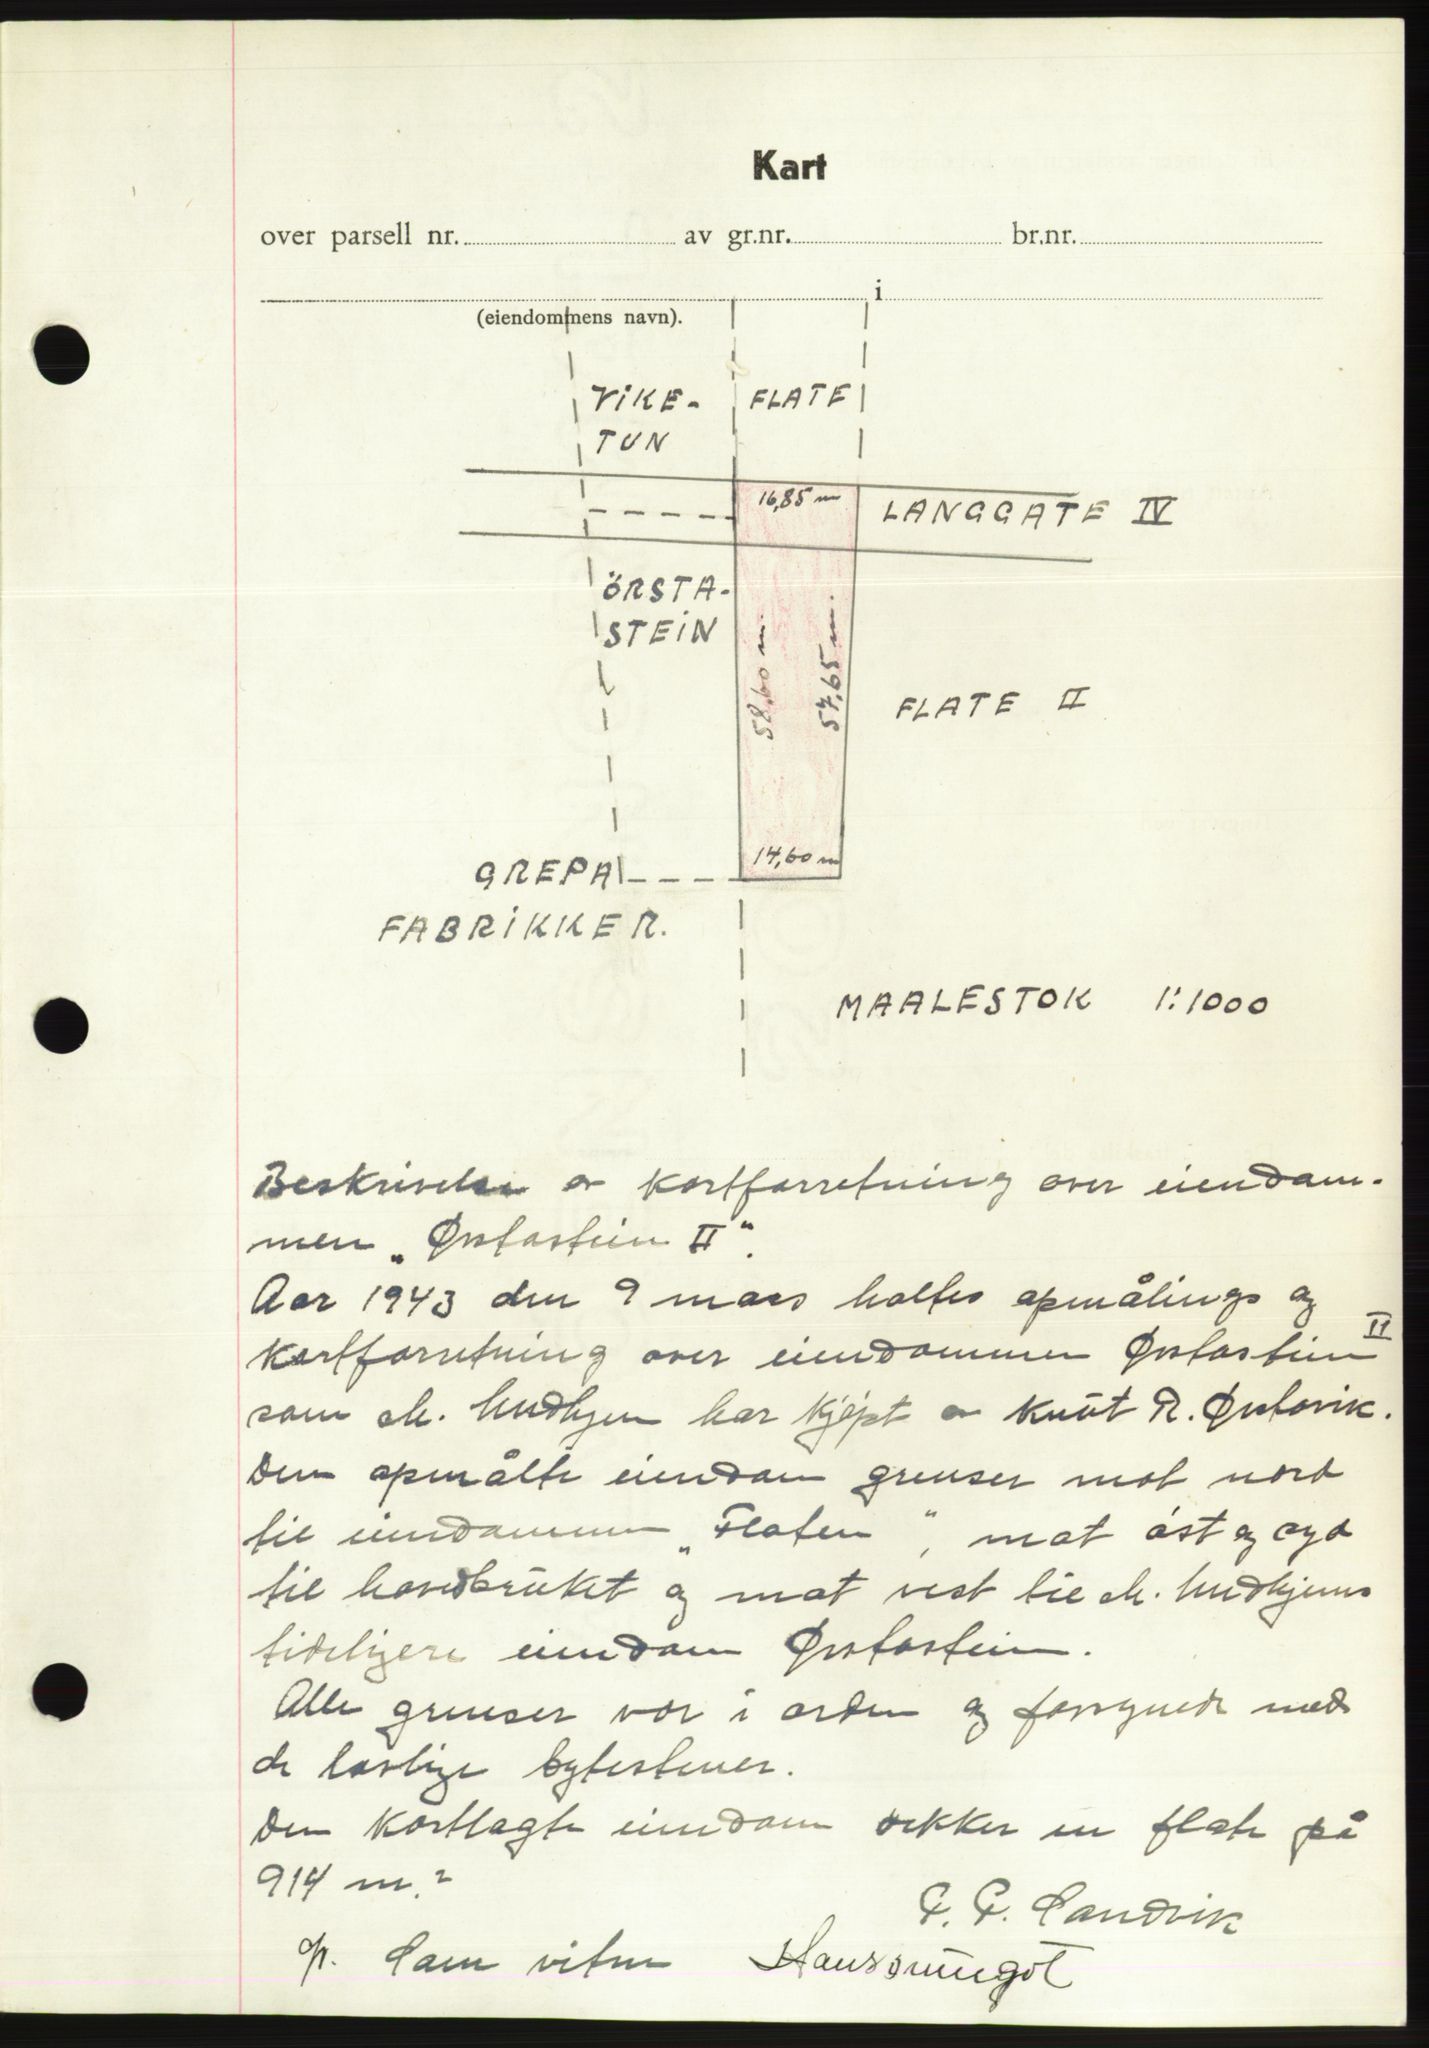 Kart
over parsell nr. av gr.nr. br.nr.
i
(eiendommens navn).
VIKE- FLATE
TUN
16,85 m LANGGATE IV
ÖRSTA-
STEIN
58,60 m. 57,65 m.
FLATE II
14,60 m
GREPA
FABRIKKER.
MAALESTOK 1:1000
Beskrivelse av kartforretning over eiendom-
men „Ørstastein II“.
Aar 1943 den 9 mars holtes opmålings og
kartforretning over eiendommen Ørstastein II
som har kjøpt av Knut R. Ørstavik.
Den opmålte eiendom grenser mot nord
til eiendommen „Flaten“, mot øst og syd
til hovedbruket og mot vest til
tideligere eiendom Ørstastein.
Alle grenser var i orden og forsynede med
de lovlige bytestener.
Den kartlagte eiendom dekker en flate på
914 m.²
Sandvik
Som vitne